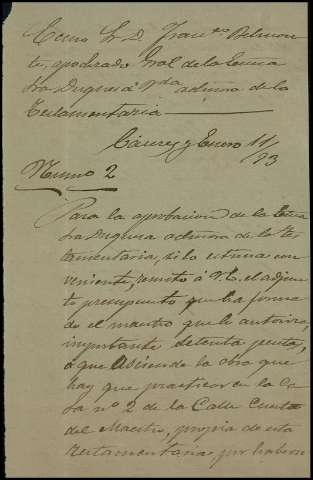 Excmo Sr D. Fran.co Belmon
te, apoderado Gral de la Excma
Sra Duquesa Vda admra de la
Testamentaria
Cáceres y Enero 11/93
Numo 2
Para la aprobacion de la Excma
Sra Duquesa admra de la Tes
tamentaria, si lo estima con
veniente, remito á V.E. el adjun
to presupuesto que ha forma
do el maestro que lo autoriza,
importante setenta pesetas,
á que asciende la obra que
hay que practicar en la Ca
sa nº 2 de la Calle Cuesta
del Maestre, propia de esta
Testamentaria, por haberse